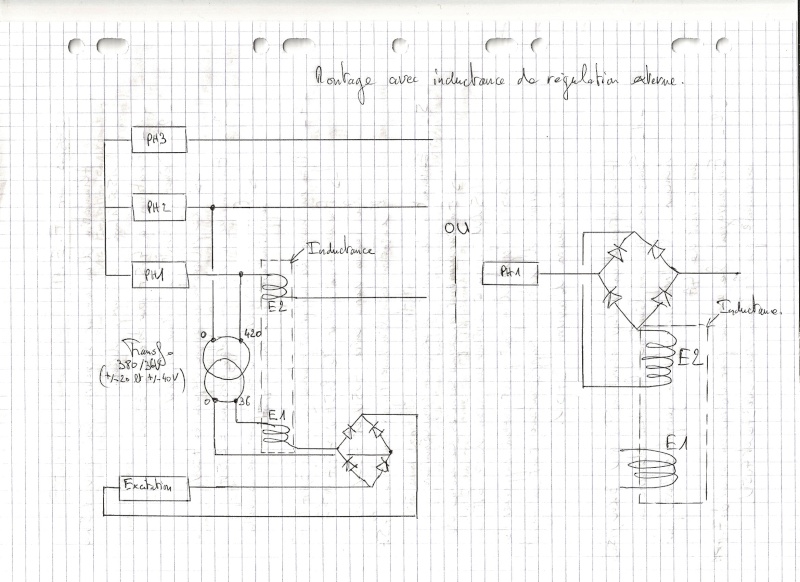 Montage avec inductance de régulation externe.
PH3
PH2
OU
Inductance
PH1
PH1
E2
Inductance.
0
420
Transfo
380/36V
(+/-20 et +/-40V)
E2
0
36
E1
E1
Excitation